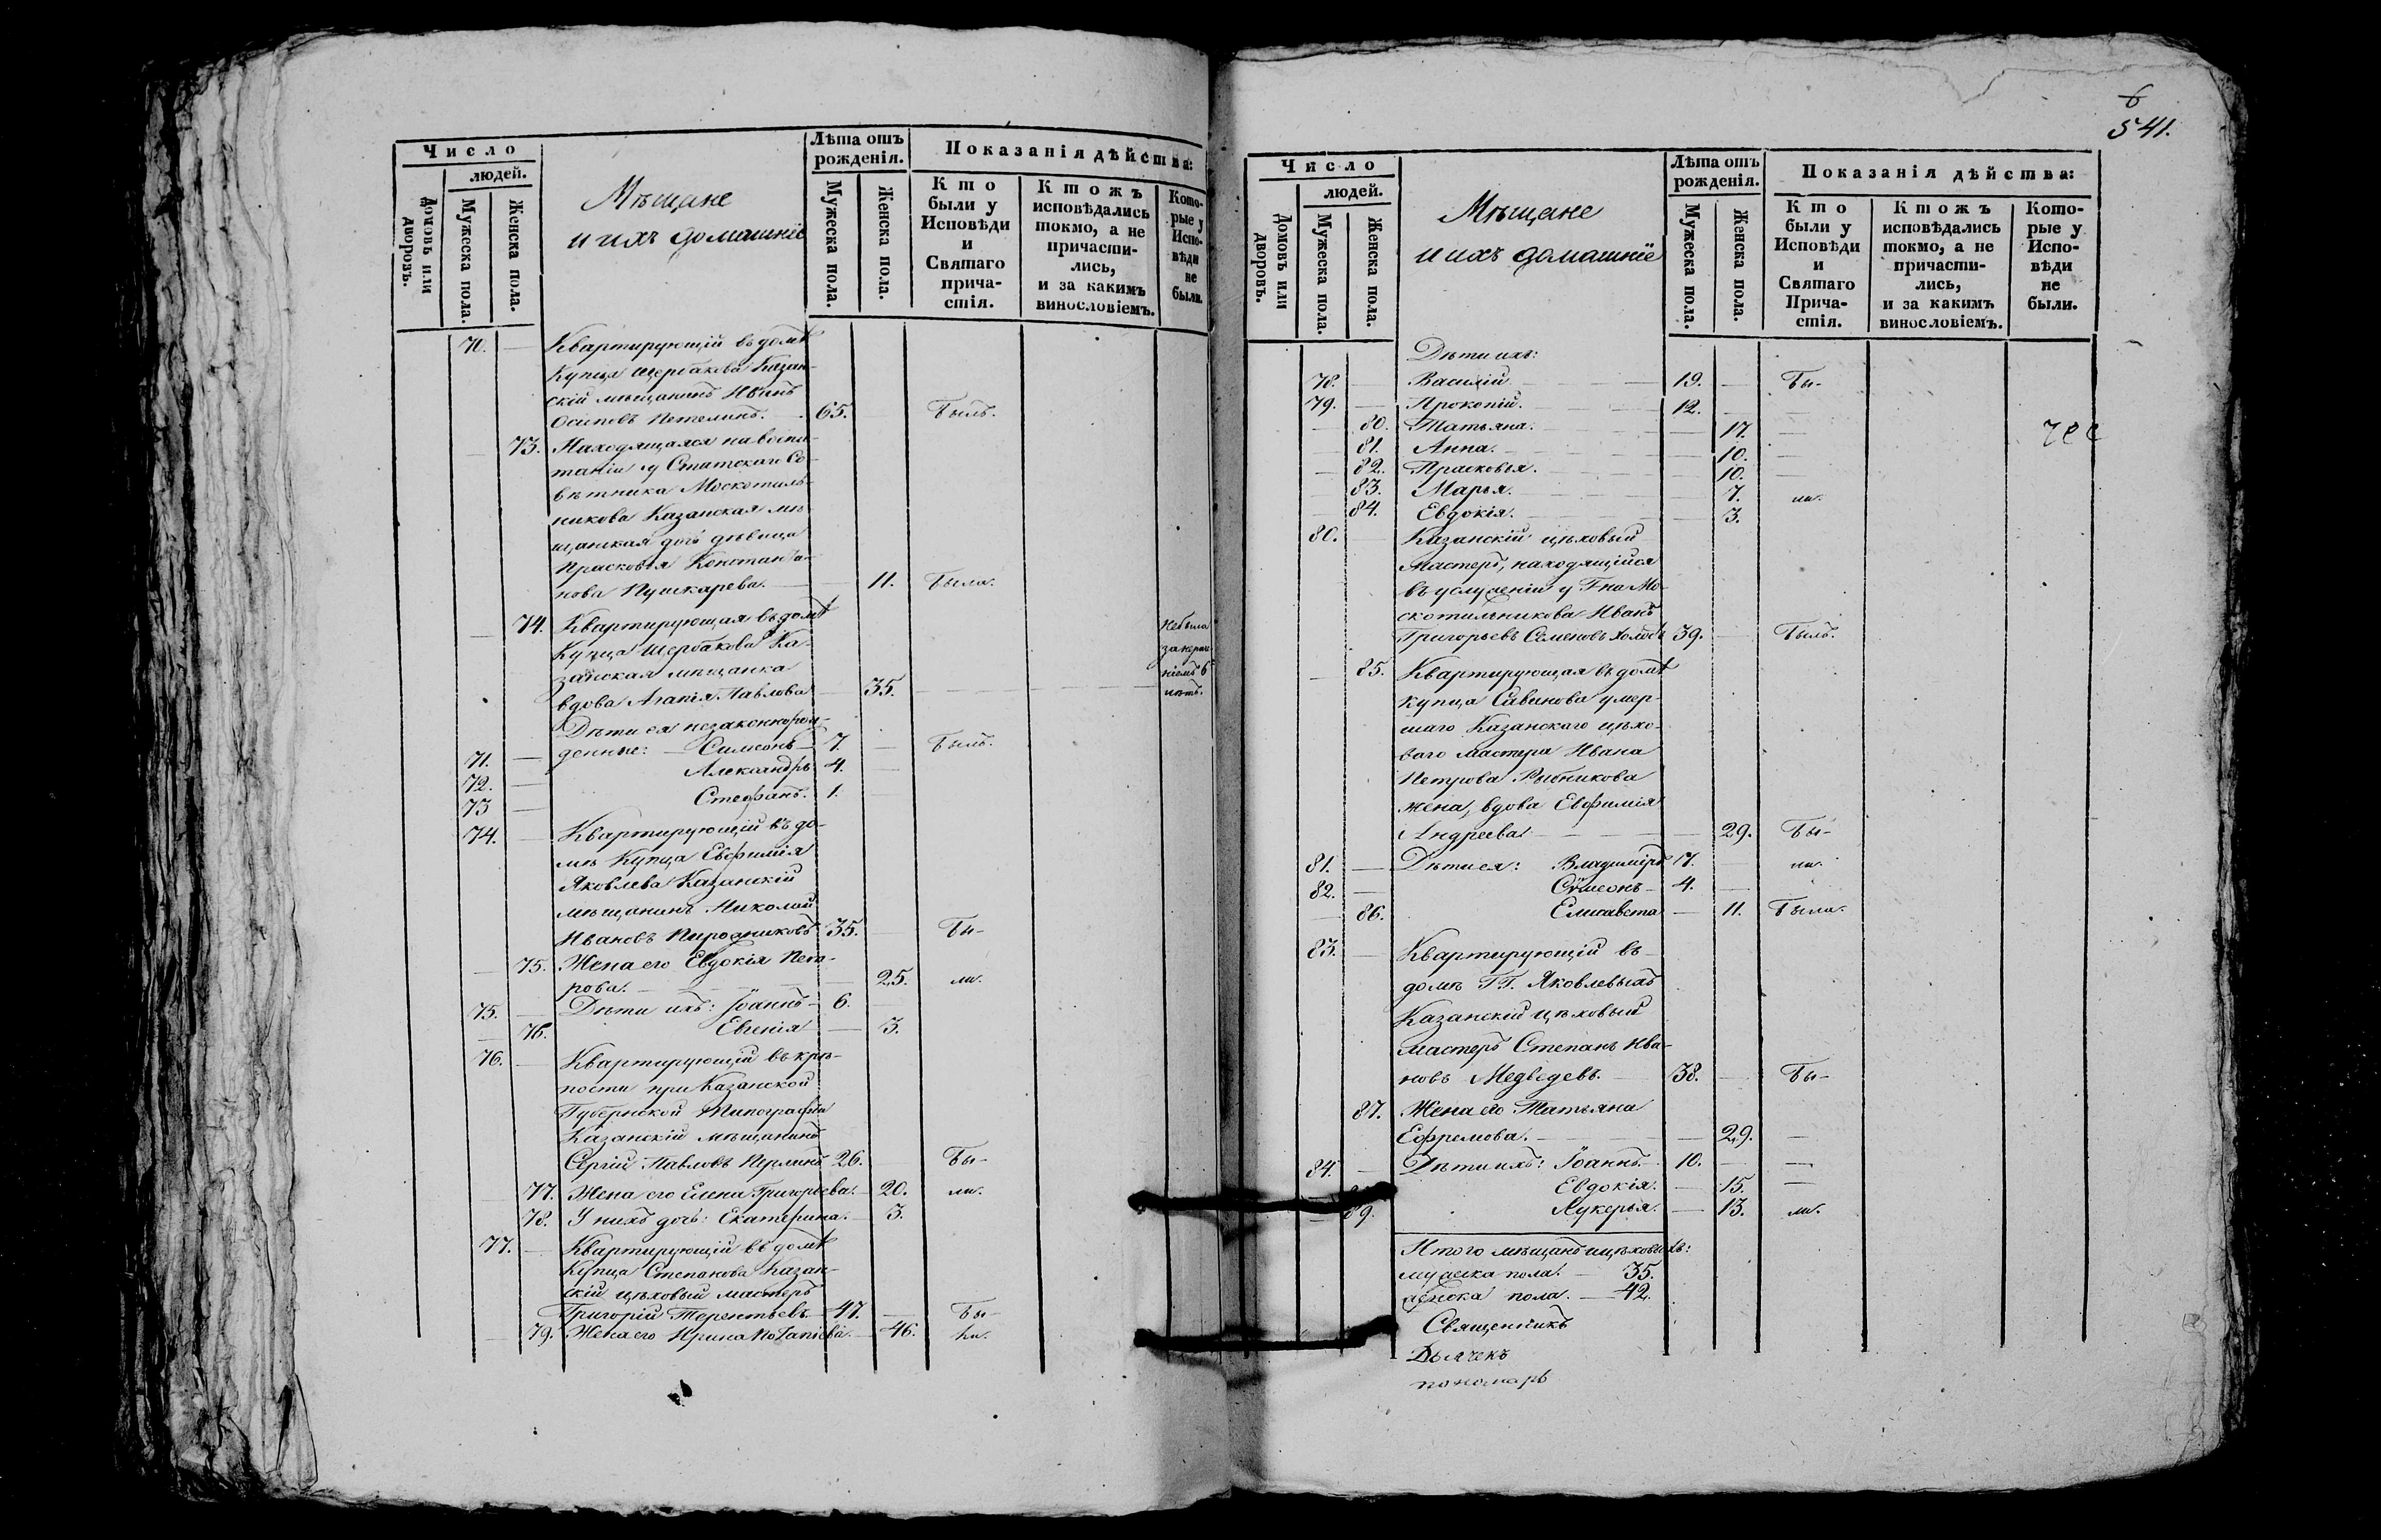 Число
людей.
Домовъ или дворовъ.
Мужеска пола.
Женска пола.
Мѣщане
и ихъ домашніе
Лѣта отъ рожденія.
Мужеска пола.
Женска пола.
Показанія дѣйства:
Кто были у Исповѣди и Святаго причастія.
Ктожъ исповѣдались токмо, а не причастились, и за какимъ винословіемъ.
Которые у Исповѣди не были.
70. — Квартирующій въ домѣ
Купца Щербакова Казан-
скій мѣщанинъ Иванъ
Осиповъ Петелинъ. 65. Былъ.
73. Находящаяся на воспи-
таніи у Статскаго Со-
вѣтника Москотиль-
никова Казанская мѣ-
щанская дочь дѣвица
Прасковья Константи-
нова Пушкарева. — 11. Была.
74. Квартирующая въ домѣ
Купца Щербакова Ка-
занская мѣщанка
вдова Агапія Павлова — 35.
Дѣти ея незаконнорож-
71. — денные: — Симеонъ — 7. — Былъ.
72. — Александръ 4. —
73 — Стефанъ. 1. —
74. — Квартирующій въ до-
мѣ Купца Евфимія
Яковлева Казанскій
мѣщанинъ Николай
Ивановъ Пирожниковъ 35. Бы-
75. Жена его Евдокія Пет-
рова. — 25. ли.
75. — Дѣти ихъ: Іоаннъ — 6.
76. Евгенія — 3.
76. — Квартирующій въ крѣ-
пости при Казанской
Губернской Типографіи
Казанскій мѣщанинъ
Сергій Павловъ 26. Бы-
77. Жена его Елена Григорьева. — 20. ли.
78. У нихъ дочь: Екатерина. — 3.
77. — Квартирующій въ домѣ
Купца Степанова Казан-
скій цѣховый мастеръ
Григорій Терентьевъ — 47. — Бы-
79. Жена его Ирина — 46. ли.
6
541.
Число
людей.
Домовъ или дворовъ.
Мужеска пола.
Женска пола.
Мѣщане
и ихъ домашніе
Лѣта отъ рожденія.
Мужеска пола.
Женска пола.
Показанія дѣйства:
Кто были у Исповѣди и Святаго Причастія.
Ктожъ исповѣдались токмо, а не причастились, и за какимъ винословіемъ.
Которые у Исповѣди не были.
Дѣти ихъ:
78. — Василій — 19. — Бы-
79. — Прокопій. 12. —
— 80. Татьяна. — 17. —
— 81. Анна. — 10. —
— 82. Прасковья. — 10. —
— 83. Марья. — 7. ли.
— 84. Евдокія. — 3.
80. Казанскій цѣховый
мастеръ, находящійся
въ услуженіи у Г-на Мо-
скотильникова Иванъ
Григорьевъ Семеновъ холостъ 39. — Былъ.
— 85. Квартирующая въ домѣ
купца Савинова умер-
шаго Казанскаго цѣхо-
ваго мастера Ивана
Петрова Рыбникова
жена, вдова Евфимія
Андреева. — 29. Бы-
81. — Дѣти ея: Владиміръ 17. — ли.
82. — Сѵмеонъ — 4. —
— 86. Елисавета — 11. Была.
83. — Квартирующій въ
домѣ Г.Г. Яковлевыхъ
Казанскій цѣховый
мастеръ Степанъ Ива-
новъ Медвѣдевъ. — 38. — Бы-
87. Жена его Татьяна
Ефремова. — 29. —
84. — Дѣти ихъ: Іоаннъ. 10. — —
Евдокія. — 15. —
89. Лукерья. — 13. ли.
Итого мѣщанъ и цѣховыхъ:
мужеска пола. — 35.
женска пола. — 42.
Священникъ
Дьячекъ
пономарь